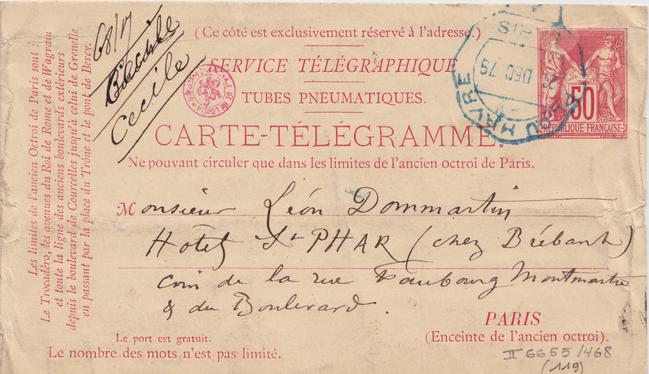 (Ce côté est exclusivement réservé à l'adresse.)
SERVICE TÉLÉGRAPHIQUE
TUBES PNEUMATIQUES.
CARTE-TÉLÉGRAMME.
Ne pouvant circuler que dans les limites de l'ancien octroi de Paris.
68/17
Cécile
Les limites de l'ancien Octroi de Paris sont :
Le Trocadéro, les avenues du Roi de Rome et de Wagram
et toute la ligne des anciens boulevards extérieurs
depuis le boulevard de Courcelles jusqu'à celui de Grenelle
en passant par la place du Trône et le pont de Bercy.
DU HAVRE
DEC 79
50
REPUBLIQUE FRANÇAISE
Monsieur Léon Dommartin
Hotel St PHAR (chez Brébant)
coin de la rue Faubourg Montmartre
& du Boulevard.
PARIS
(Enceinte de l'ancien octroi).
Le port est gratuit.
Le nombre des mots n'est pas limité.
II 6655/468
(119)